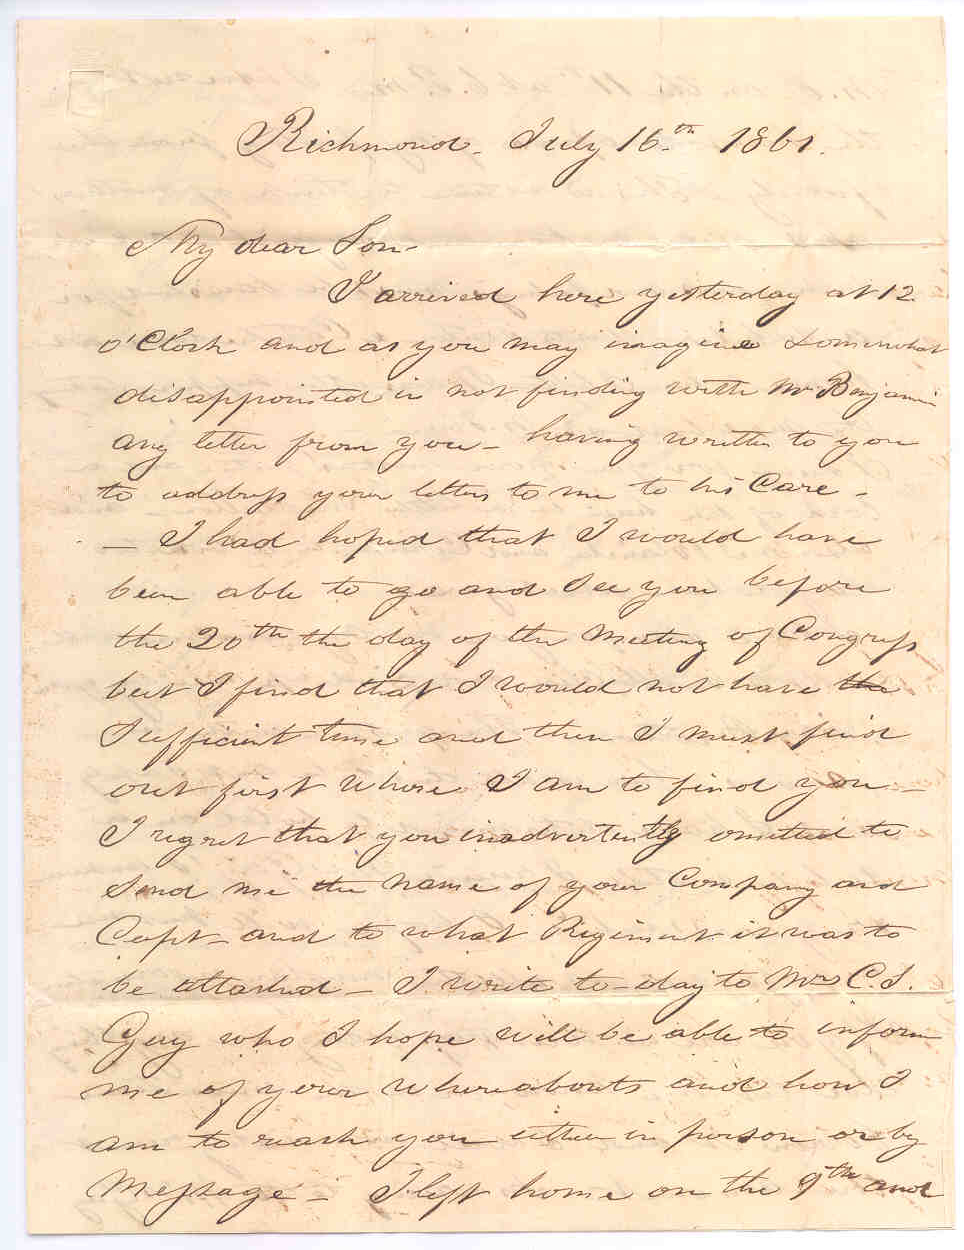 Richmond - July 16th 1861.
My dear Son -
I arrived here yesterday at 12
o'Clock and as you may imagine somewhat
disappointed in not finding with Mr Benjamin
any letter from you - having written to you
to address your letters to me to his Care -
- I had hoped that I would have
been able to go and see you before
the 20th the day of the Meeting of Congress
but I find that I would not have the
sufficient time and then I must find
out first where I am to find you -
I regret that you inadvertently omitted to
send me the name of your Company and
Capt - and to what Regiment it was to
be attached - I write to-day to Mr C. S.
Guy who I hope will be able to inform
me of your whereabouts and how I
am to reach you either in person or by
Message - I left home on the 9th and